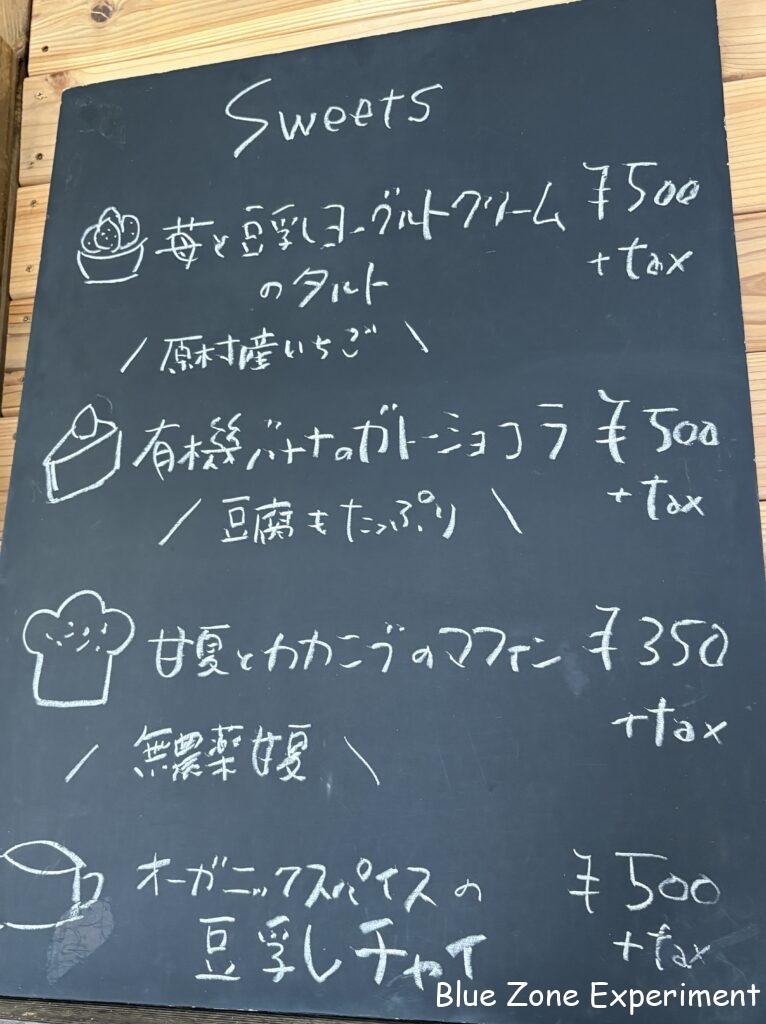 Sweets
苺と豆乳ヨーグルトクリーム ¥500
のタルト +tax
/ 原村産いちご \
有機バナナのガトーショコラ ¥500
+tax
/ 豆腐もたっぷり \
甘夏とカカオニブのマフィン ¥350
+tax
/ 無農薬甘夏 \
オーガニックスパイスの ¥500
豆乳チャイ +tax
Blue Zone Experiment